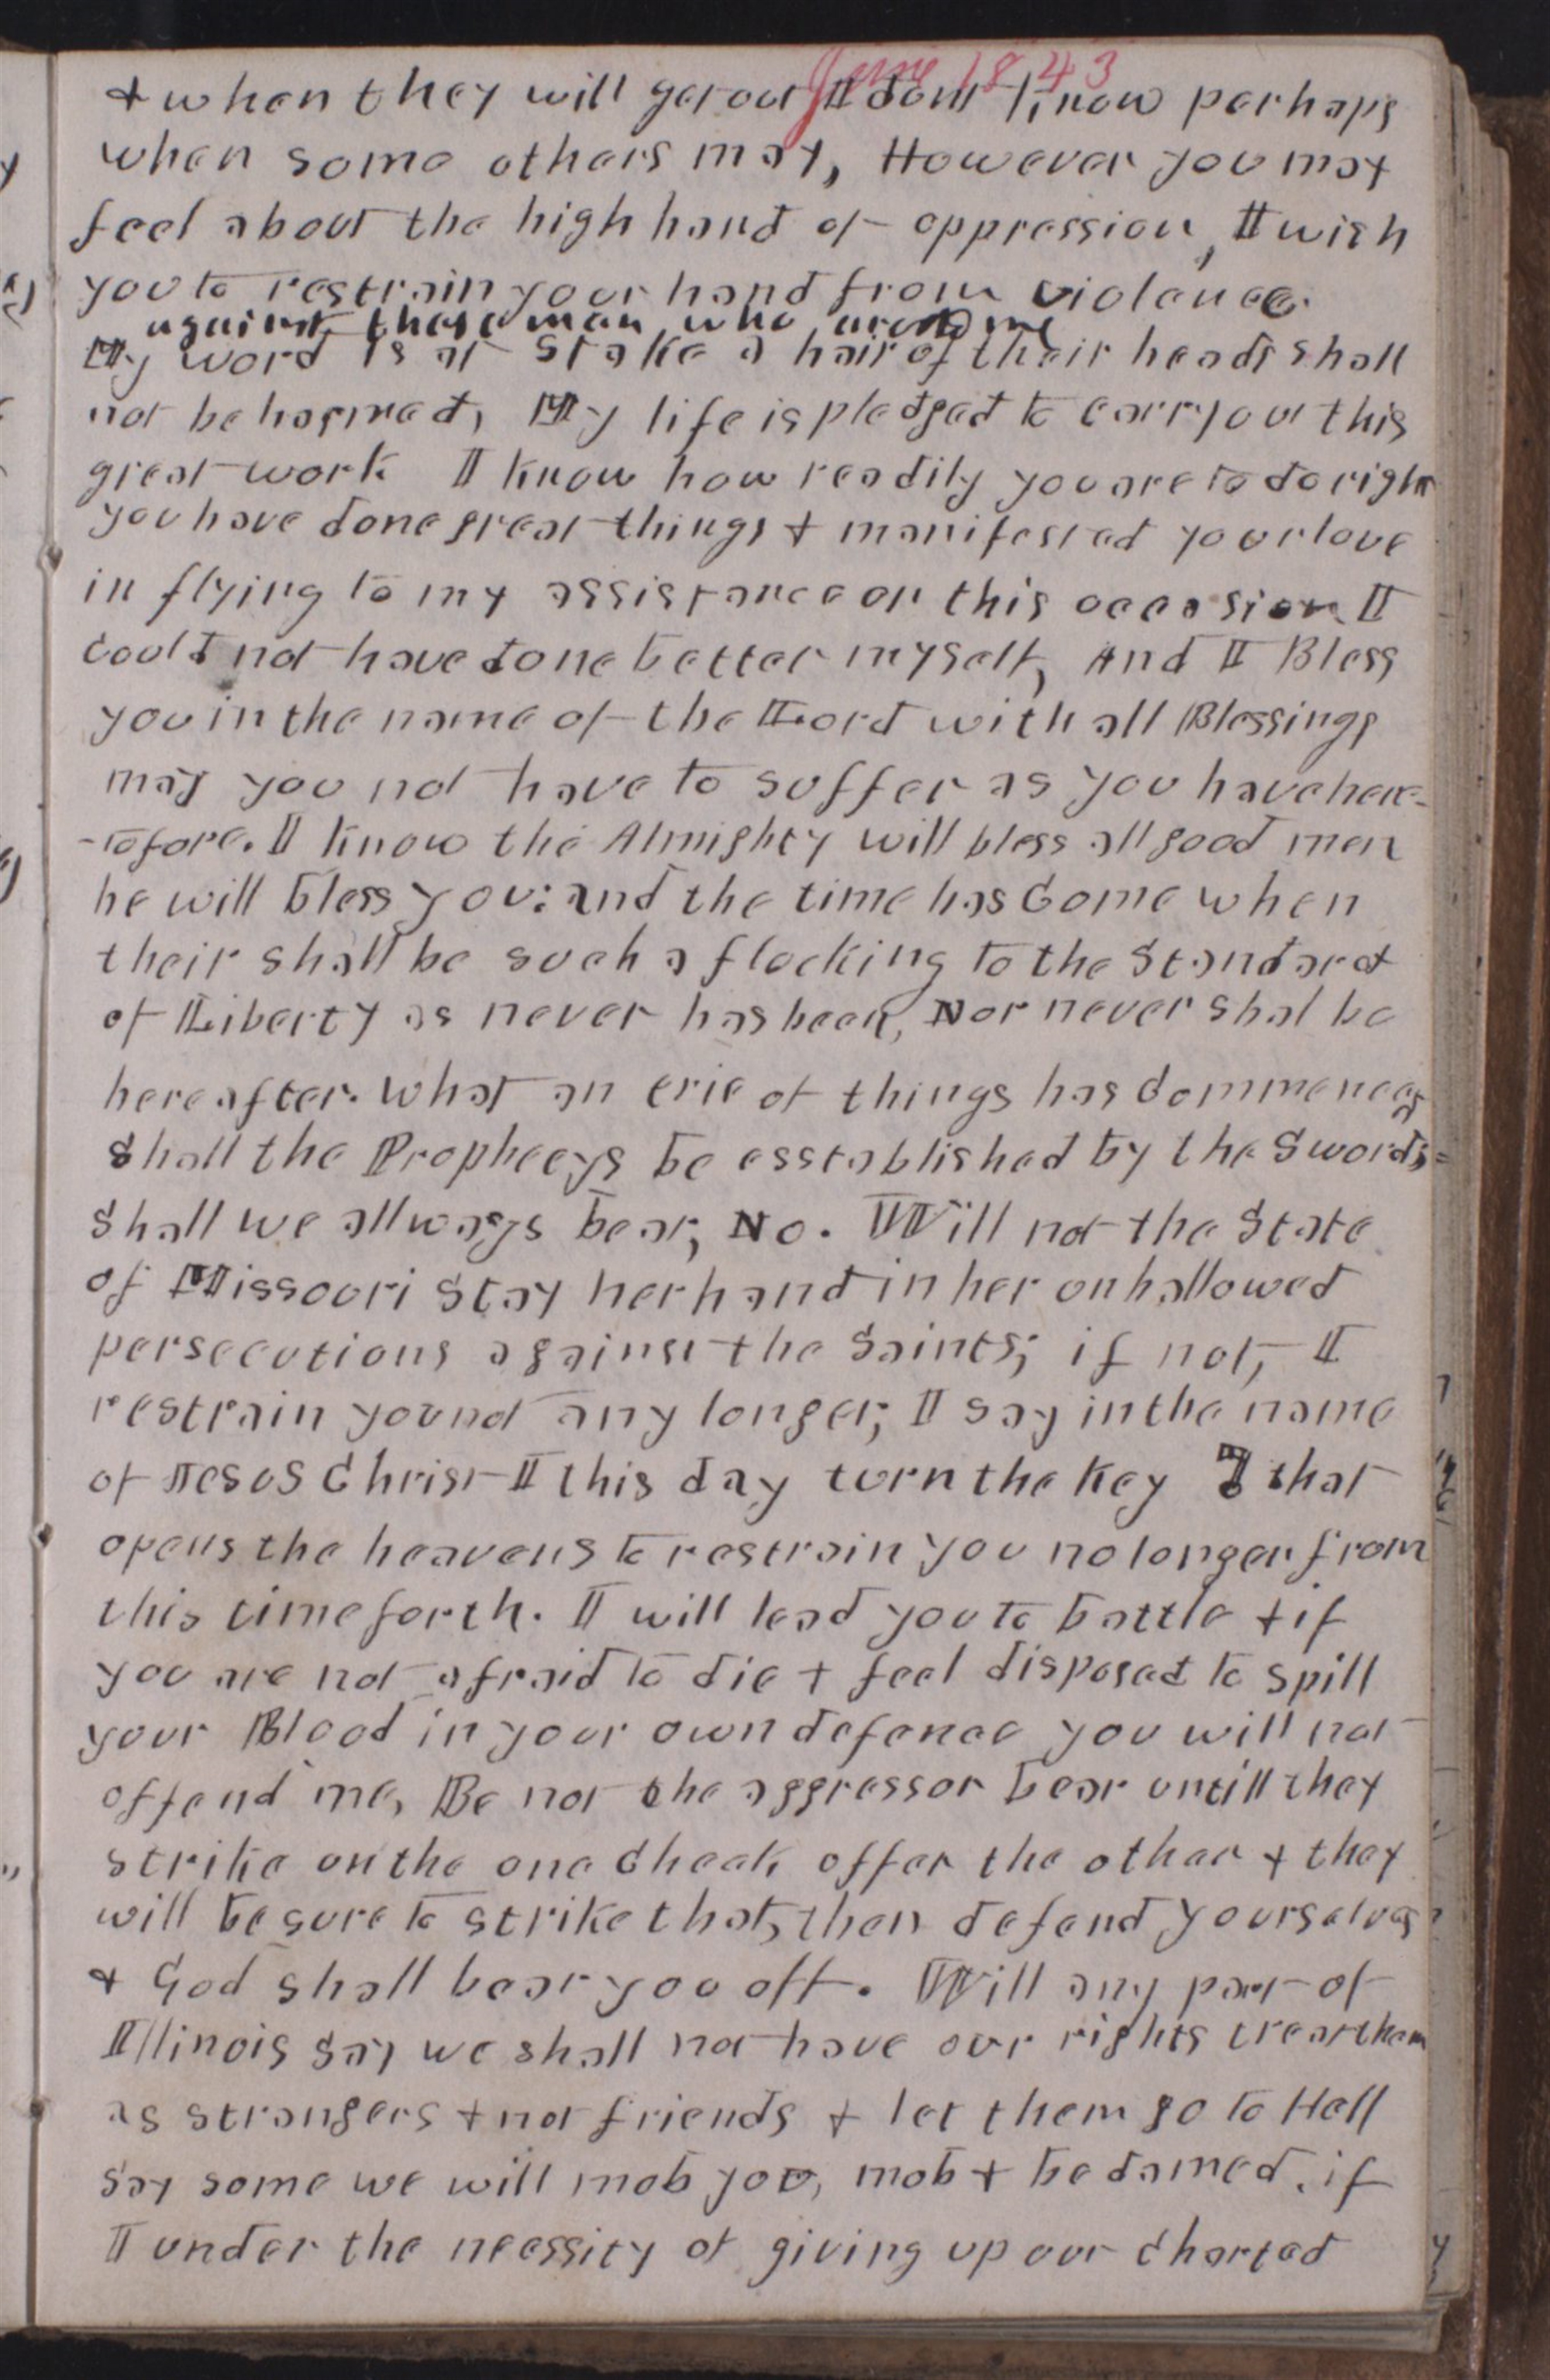 June 1843
& when they will get out I dont know perhaps
when some others may, However you may
feel about the high hand of oppression, I wish
you to restrain your hand from violence
against these men who arested me
My word is at stake a hair of their heads shall
not be harmed, My life is pledged to carry out this
great work I know how readily you are to do right
you have done great things & manifested your love
in flying to my assistance on this occasion I
could not have done better myself, And I Bless
you in the name of the Lord with all Blessings
may you not have to suffer as you have here-
-tofore. I know the Almighty will bless all good men
he will bless you: and the time has Come when
their shall be such a flocking to the Standard
of Liberty as never has been, Nor never shal be
hereafter. What an erie of things has Commenced
Shall the Prophecys be esstablished by the Sword,=
Shall we allways bear, No. Will not the State
of Missouri Stay her hand in her unhallowed
persecutions against the Saints; if not, I
restrain you not any longer, I say in the name
of Jesus Christ I this day turn the Key that
opens the heavens to restrain you no longer from
this time forth. I will lead you to battle & if
you are not afraid to die & feel disposed to spill
your Blood in your own defence you will not
offend me, Be not the aggressor bear untill they
strike on the one Cheek offer the other & they
will be sure to strike that, then defend yourselves
& God shall bear you off. Will any part of
Illinois say we shall not have our rights treat them
as strangers & not friends & let them go to Hell
Say some we will mob you, mob & be damed. if
I under the necessity of giving up our Charted